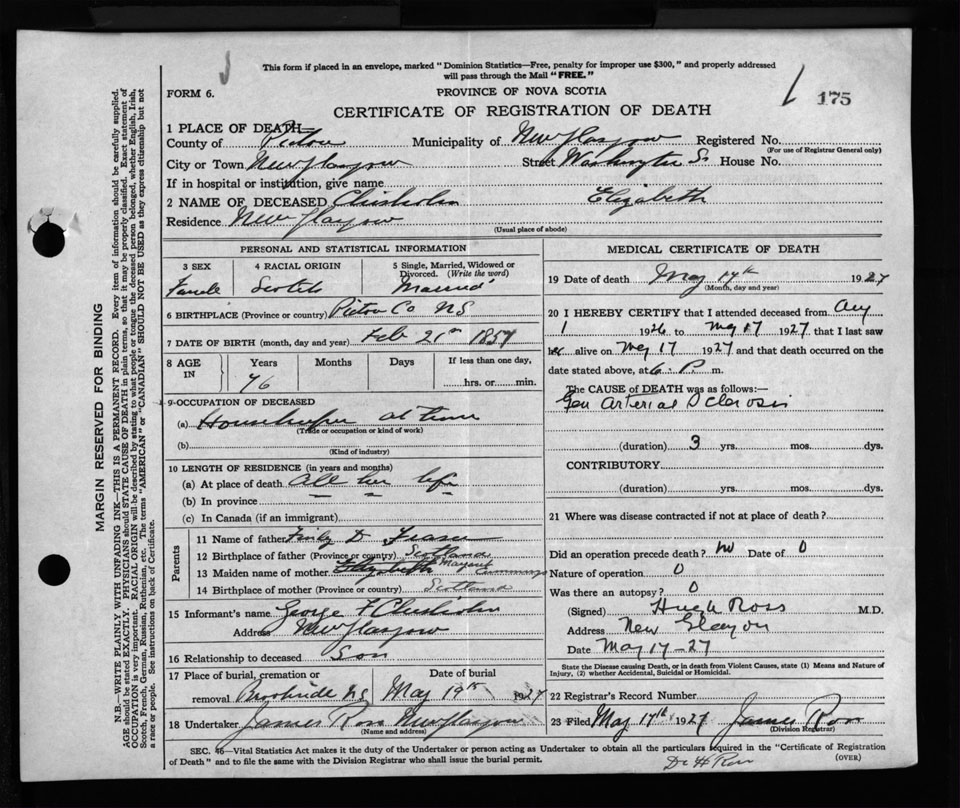 This form if placed in an envelope, marked "Dominion Statistics—Free, penalty for improper use $300," and properly addressed
will pass through the Mail "FREE."
FORM 6.
PROVINCE OF NOVA SCOTIA
175
CERTIFICATE OF REGISTRATION OF DEATH
1 PLACE OF DEATH—
County of Pictou Municipality of New Glasgow Registered No.
(For use of Registrar General only)
City or Town New Glasgow Street Washington St House No.
If in hospital or institution, give name
2 NAME OF DECEASED Chisholm Elizabeth
Residence New Glasgow
(Usual place of abode)
PERSONAL AND STATISTICAL INFORMATION
3 SEX 4 RACIAL ORIGIN 5 Single, Married, Widowed or Divorced. (Write the word)
Female Scotch Married
6 BIRTHPLACE (Province or country) Pictou Co NS
7 DATE OF BIRTH (month, day and year) Feb 21st
8 AGE IN Years Months Days If less than one day,
76 hrs. or min.
9-OCCUPATION OF DECEASED
(a) Housekeeper at home
(Trade or occupation or kind of work)
(b)
(Kind of industry)
10 LENGTH OF RESIDENCE (in years and months)
(a) At place of death all her life
(b) In province
(c) In Canada (if an immigrant)
Parents
11 Name of father D Fraser
12 Birthplace of father (Province or country) Scotland
13 Maiden name of mother Elizabeth Margaret Cummings
14 Birthplace of mother (Province or country) Scotland
15 Informant's name George F Chisholm
Address New Glasgow
16 Relationship to deceased Son
17 Place of burial, cremation or removal Date of burial
NS May 19th 1927
18 Undertaker James Ross New Glasgow
(Name and address)
MEDICAL CERTIFICATE OF DEATH
19 Date of death May 17th 1927
(Month, day and year)
20 I HEREBY CERTIFY that I attended deceased from Aug
1 1926 to May 17 1927 that I last saw
her alive on May 17 1927 and that death occurred on the
date stated above, at 6 P. m.
The CAUSE of DEATH was as follows:—
Gen Arterial Sclerosis
(duration) 3 yrs. mos. dys.
CONTRIBUTORY
(duration) yrs. mos. dys.
21 Where was disease contracted if not at place of death?
Did an operation precede death? no Date of 0
Nature of operation 0
Was there an autopsy? 0
(Signed) Hugh Ross M.D.
Address New Glasgow
Date May 17-27
State the Disease causing Death, or in death from Violent Causes, state (1) Means and Nature of
Injury, (2) whether Accidental, Suicidal or Homicidal.
22 Registrar's Record Number
23 Filed May 17th 1927 James Ross
(Division Registrar)
SEC. 46—Vital Statistics Act makes it the duty of the Undertaker or person acting as Undertaker to obtain all the particulars required in the "Certificate of Registration
of Death" and to file the same with the Division Registrar who shall issue the burial permit.
(OVER)
Dr H Ross
MARGIN RESERVED FOR BINDING
N.B.—WRITE PLAINLY, WITH UNFADING INK—THIS IS A PERMANENT RECORD. Every item of information should be carefully supplied.
AGE should be stated EXACTLY. PHYSICIANS should STATE CAUSE OF DEATH in plain terms, so that it may be properly classified. Exact statement of
OCCUPATION is very important. RACIAL ORIGIN will be described by stating to what people or tongue the deceased person belonged, whether English, Irish,
Scotch, French, German, Russian, Ruthenian, etc. The terms "AMERICAN" or "CANADIAN" SHOULD NOT BE USED as they express citizenship but not
a race or people. See instructions on back of Certificate.